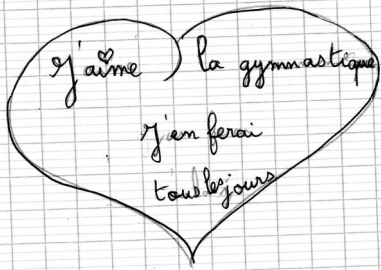 J'aime la gymnastique
J'en ferai
tous les jours